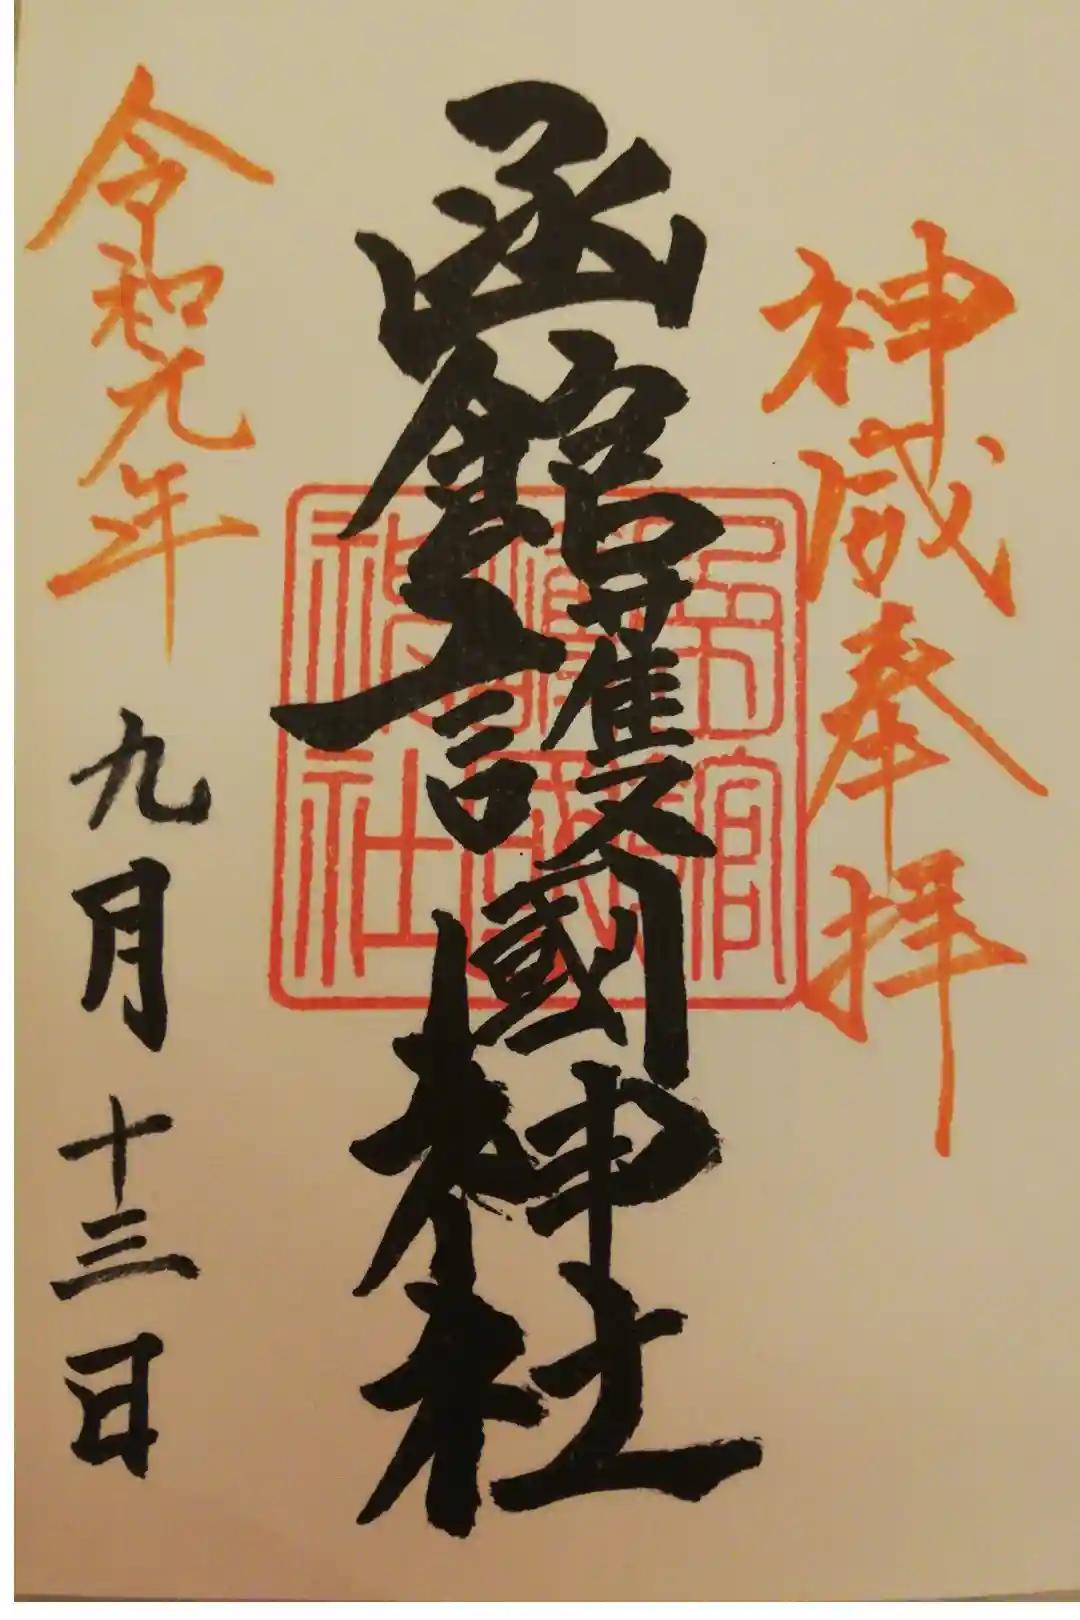 神威奉拝
函館護國神社
函館
護國
神社
令和元年九月十三日